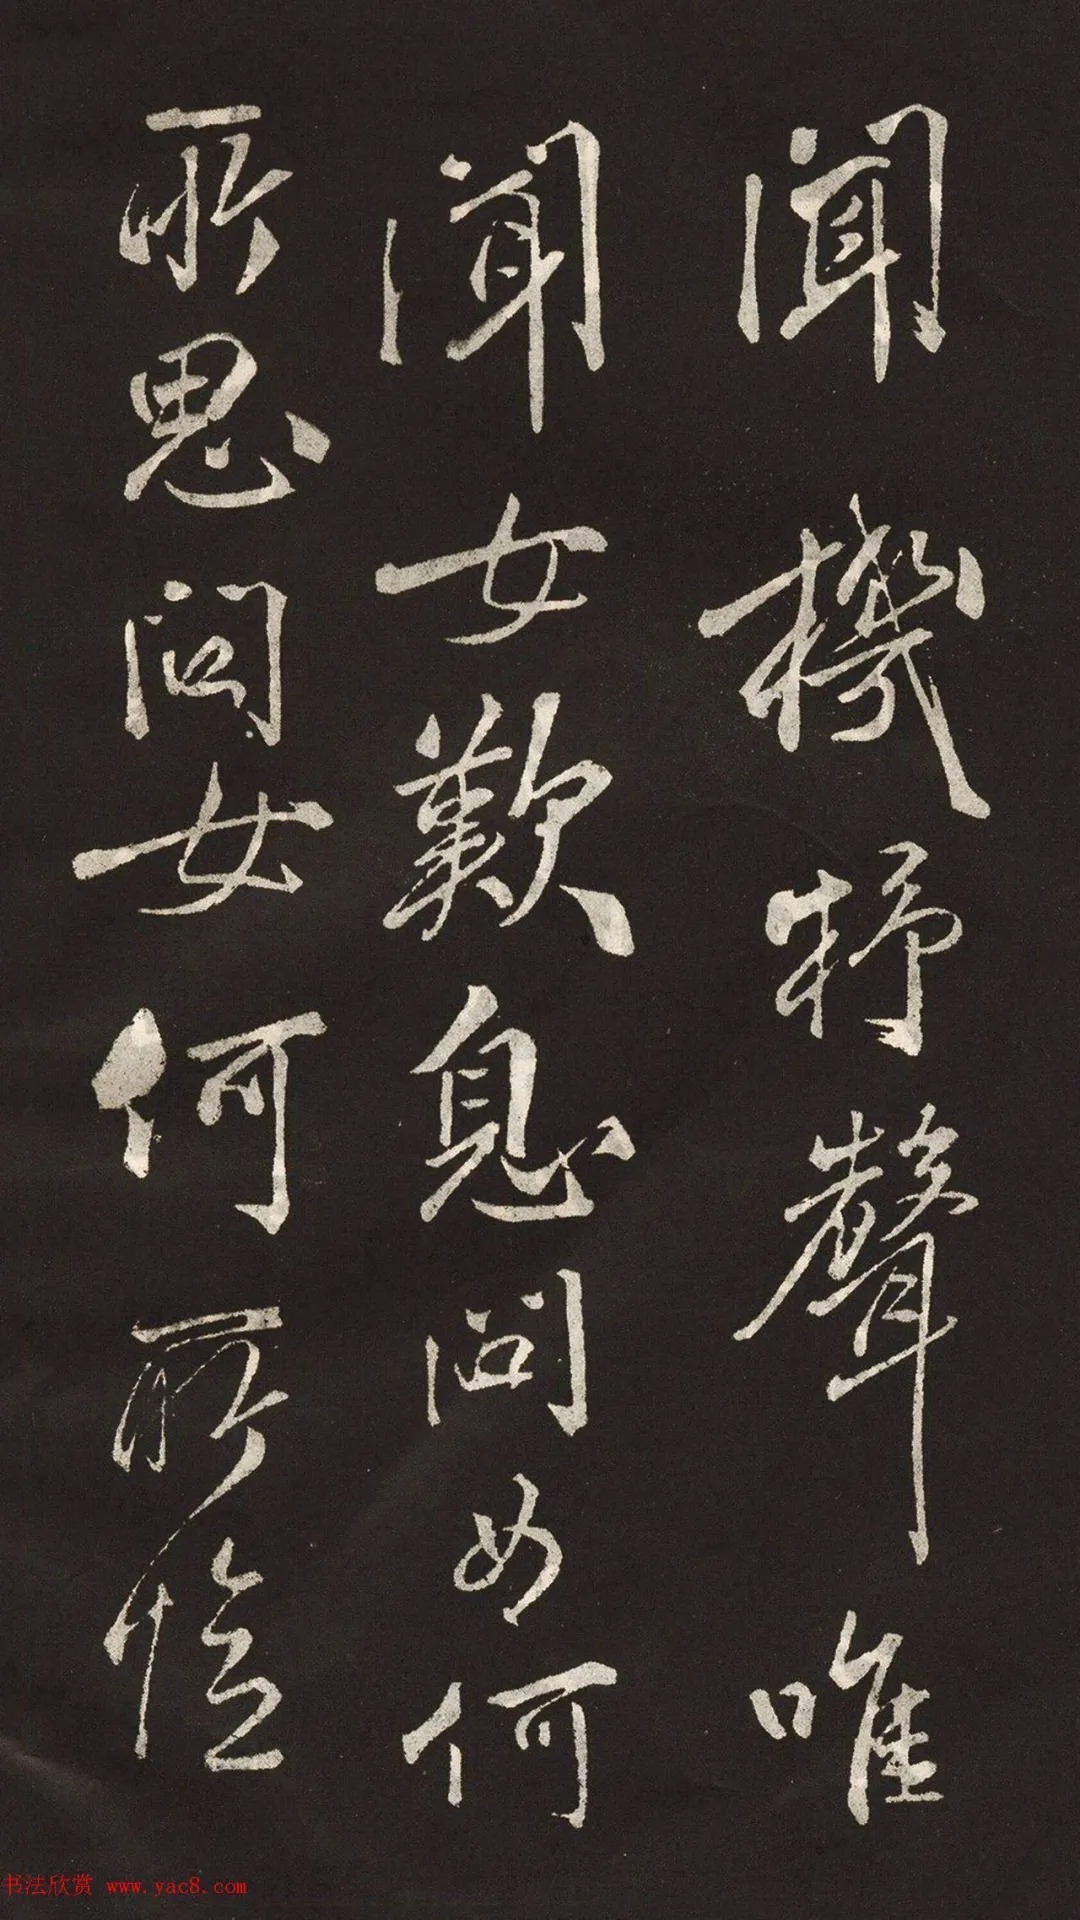 聞機杼聲唯
聞女歎息問女何
所思問女何所憶
书法欣赏 www.yac8.com